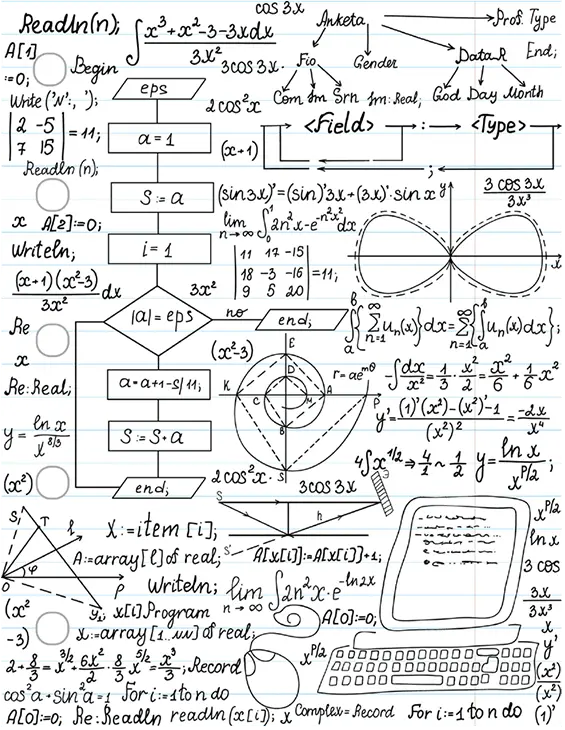 Readln(n);
∫ x³+x²-3-3xdx / 3x²
cos 3x
Anketa
Prof. Type
A[1]
:=0;
Begin
3cos3x.
Fio
Gender
DataR
End;
eps
Com Im Srn
Im: Real;
God Day Month
Write ('N':, ');
2cos²x
|2 -5|
|7 15| = 11;
a = 1
(x+1)
<Field> : <Type>
;
Readln (n);
S := a
(sin3x)'=(sin)'3x+(3x)'·sin x
y
3 cos 3x / 3x³
x A[2]:=0;
lim n→∞ ∫₀¹ 2n²x-e^-n²x² dx
Writeln;
i = 1
|11 17 -15|
|18 -3 -16| = 11;
|9 5 20|
x
(x+1)(x²-3) / 3x² dx
3x²
Re
|a| = eps
no
end;
∫ₐᵇ { Σ n=1 ∞ uₙ(x)}dx = Σ n=1 ∞ {∫ₐᵇ uₙ(x)dx};
x
(x²-3)
E
D
r=ae^mθ
K C M A P
B
S
-∫dx/x² = 1/3 · x²/2 = x²/6 + 1/6 x²
Re:Real;
a=a+1-S/11;
y' = (1)'(x²)-(x²)'-1 / (x²)² = -2x / x⁴
y = ln x / x^8/3
S := S+a
4∫x^1/2 ⇒ 4/1 ~ 1/2
y = ln x / x^P/2 ;
(x²)
end;
2cos²x.
3cos3x
S h
S'
S₁ T l
O φ P
y₁
X:=item [i];
A[x[i]]:=A[x[i]]+1;
x^P/2
ln x
A:=array[l] of real;
3 cos
Writeln;
lim n→∞ ∫2n²x·e^-ln2x
3x / 3x³
(x²
-3)
x[i] Program
A[0]:=0;
x
x:=array[1.. of real;
y'
2+8/3 = x^3/2 + 6x²/2 · 8/3 x^5/2 = x³/3; Record
x^P/2
(x²) / (x²)
cos²a+sin²a=1 For i:=1 to n do
A[0]:=0; Re:Readln readln(x[i]); x Complex=Record For i:=1 to n do (1)'